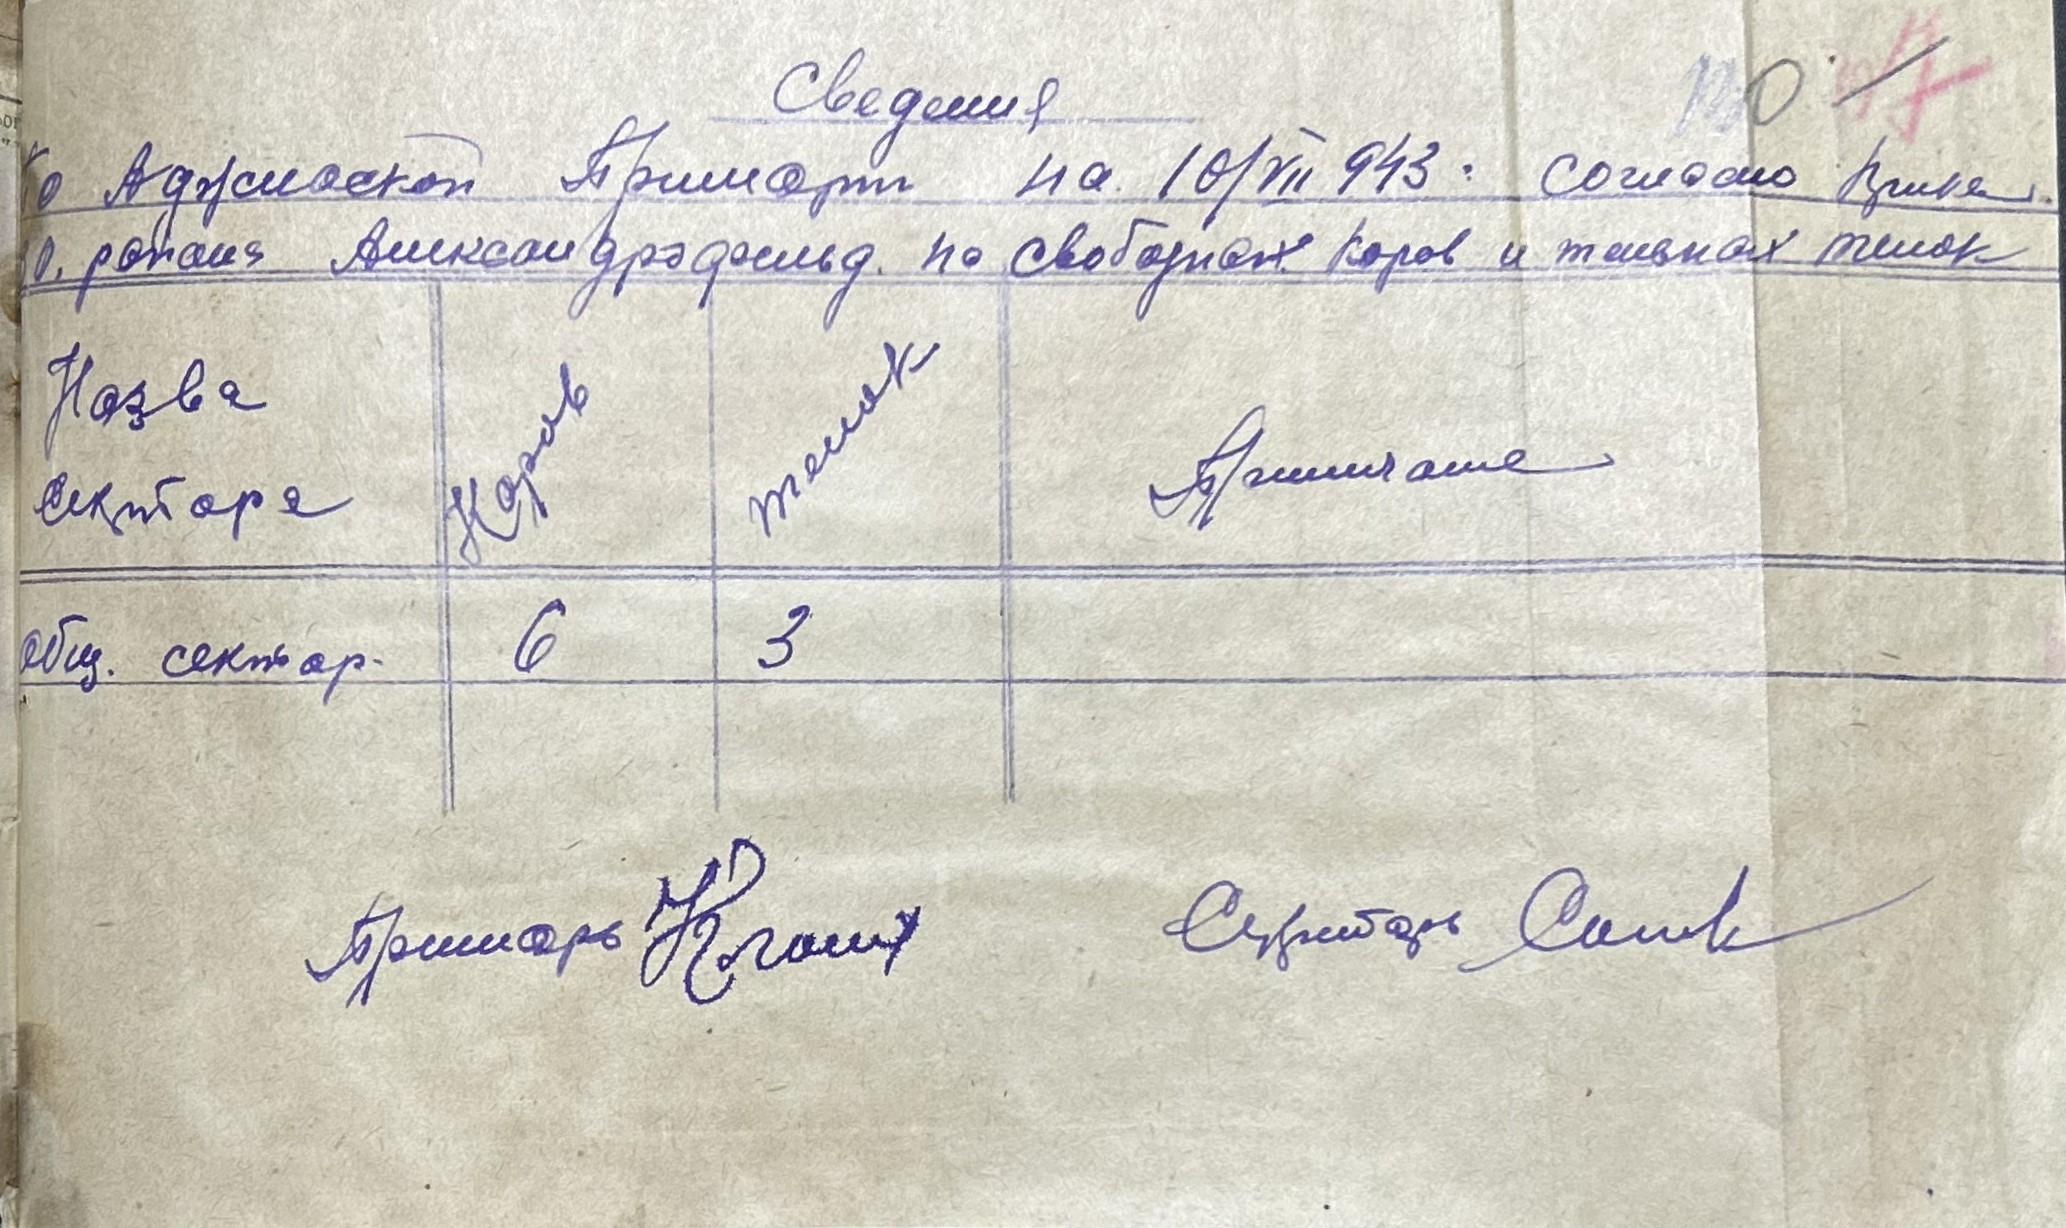 Сведения
По Аджиаской Примари на 10/VII 943: Согласно
района Александрфельд. по свободных коров и тельных телок
Назва
сектора
Коров
телок
Примичание
Общ. сектор. 6 3
Примарь
Секритарь